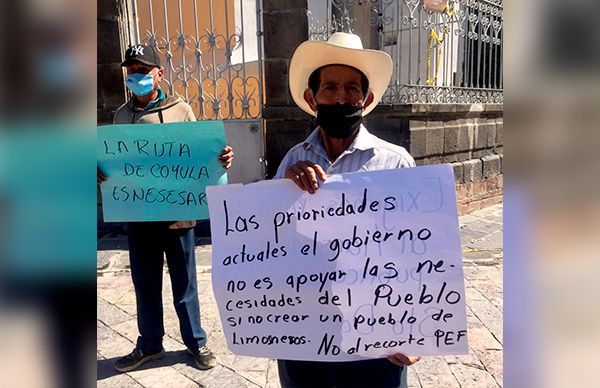 NY
LA RUTA
DE COYULA
ES NESESAR
Las prioriedades
actuales el gobierno
no es apoyar las ne-
cesidades del Pueblo
si no crear un pueblo de
Limosneros. No al recorte PEF